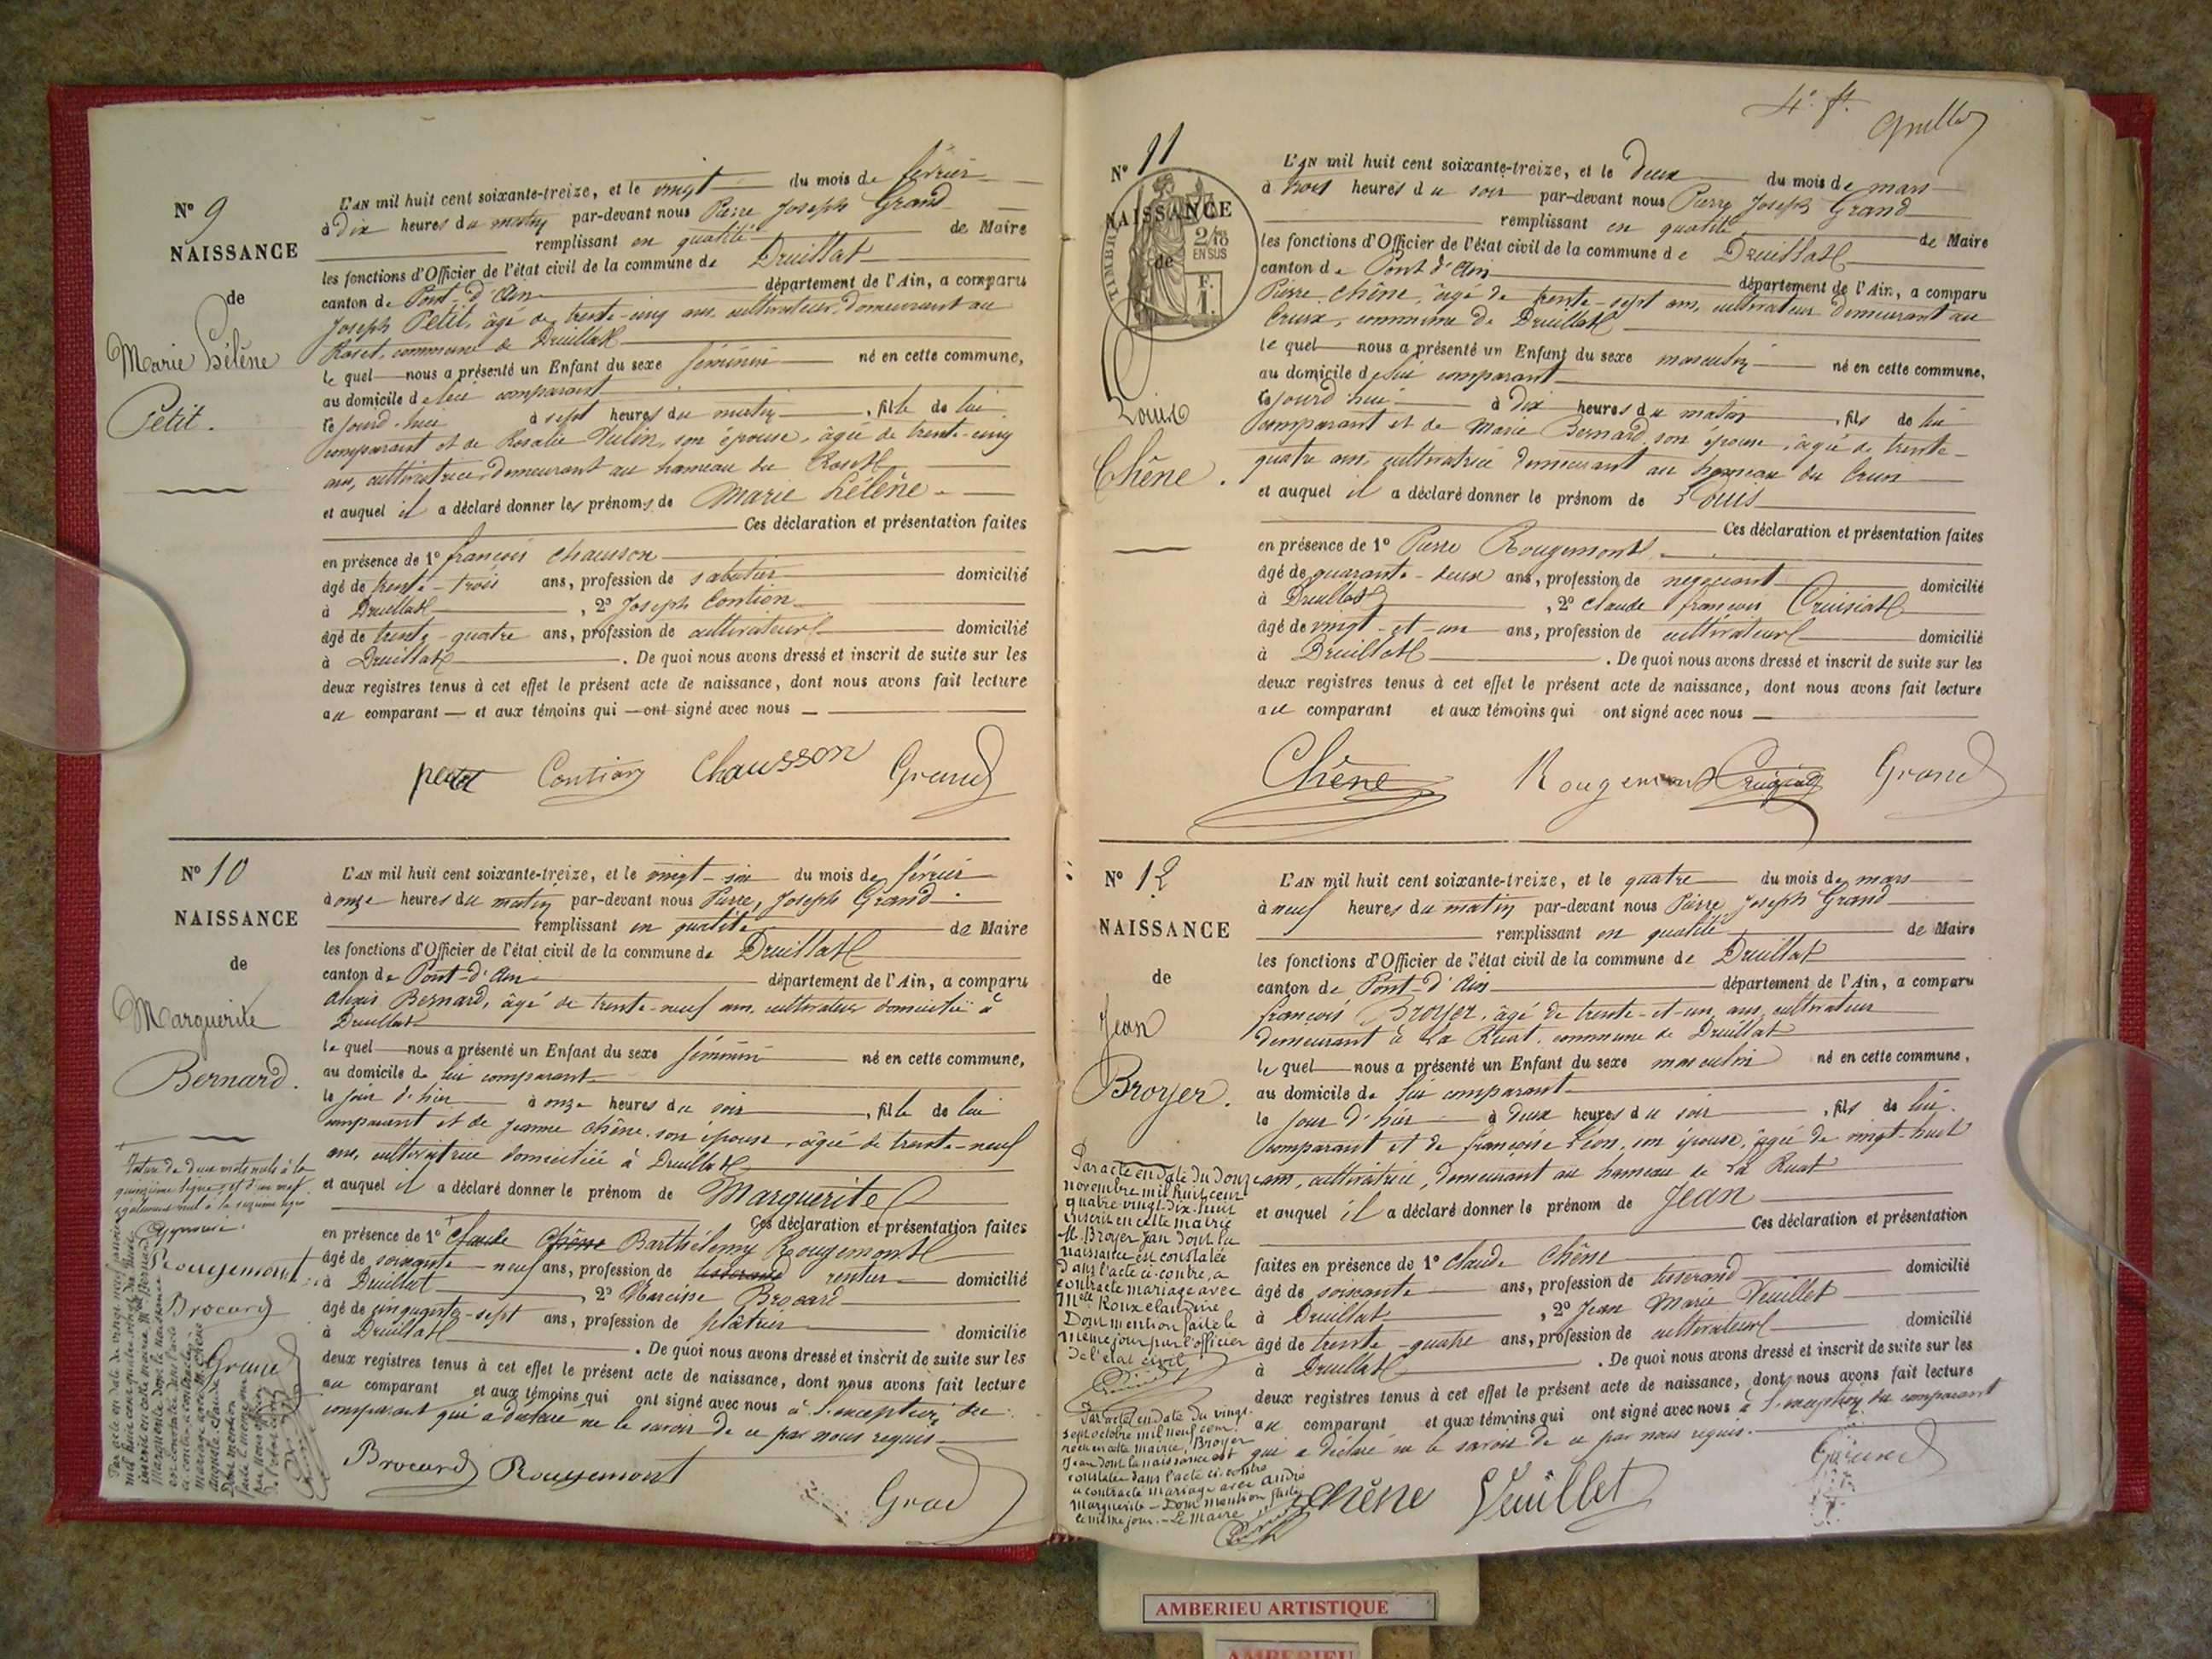 Nº 9
NAISSANCE
de
Marie Hélène
Petit.
L'AN mil huit cent soixante-treize, et le vingt du mois de février
à dix heures du matin par-devant nous Pierre Joseph Grand
remplissant en qualité de Maire
les fonctions d'Officier de l'état civil de la commune de Druillat
canton de Pont-d'Ain département de l'Ain, a comparu
Joseph Petit, âgé de trente-cinq ans, cultivateur, demeurant au
Roset, commune de Druillat
lequel nous a présenté un Enfant du sexe féminin né en cette commune,
au domicile de lui comparant
ce jourd'hui à sept heures du matin, fille de lui
comparant et de Rosalie son épouse, âgée de trente-cinq
ans, cultivatrice, demeurant au hameau du Roset
et auquel il a déclaré donner les prénoms de Marie Hélène
Ces déclaration et présentation faites
en présence de 1º françois Chausson
âgé de trente-trois ans, profession de sabotier domicilié
à Druillat, 2º Joseph Contion
âgé de trente-quatre ans, profession de cultivateur domicilié
à Druillat. De quoi nous avons dressé et inscrit de suite sur les
deux registres tenus à cet effet le présent acte de naissance, dont nous avons fait lecture
au comparant et aux témoins qui ont signé avec nous
petit Contion Chausson Grand
Nº 10
NAISSANCE
de
Marguerite
Bernard.
L'AN mil huit cent soixante-treize, et le vingt-six du mois de février
à onze heures du matin par-devant nous Pierre, Joseph Grand
remplissant en qualité de Maire
les fonctions d'Officier de l'état civil de la commune de Druillat
canton de Pont-d'Ain département de l'Ain, a comparu
Alexis Bernard, âgé de trente-neuf ans, cultivateur domicilié à
Druillat
lequel nous a présenté un Enfant du sexe féminin né en cette commune,
au domicile de lui comparant
le jour d'hier à onze heures du soir, fille de lui
comparant et de Jeanne Chêne son épouse, âgée de trente-neuf
ans, cultivatrice domiciliée à Druillat
et auquel il a déclaré donner le prénom de Marguerite
Ces déclaration et présentation faites
en présence de 1º Claude Chêne Barthélemy Rougemont
âgé de soixante-neuf ans, profession de tisserand rentier domicilié
à Druillat, 2º Narcisse Brocard
âgé de cinquante-sept ans, profession de plâtrier domicilié
à Druillat. De quoi nous avons dressé et inscrit de suite sur les
deux registres tenus à cet effet le présent acte de naissance, dont nous avons fait lecture
au comparant et aux témoins qui ont signé avec nous à l'exception du
comparant qui a déclaré ne le savoir de ce par nous requis
Brocard Rougemont
Grand
Rature de deux mots nuls à la
quinzième ligne, et d'un mot
également nul à la seizième ligne
Approuvé.
Rougemont
Brocard
Grand
4e ft.
Nº 11
NAISSANCE
de
TIMBRE
2/10
EN SUS
F.
1.
Louis
Chêne.
L'AN mil huit cent soixante-treize, et le deux du mois de mars
à trois heures du soir par-devant nous Pierre Joseph Grand
remplissant en qualité de Maire
les fonctions d'Officier de l'état civil de la commune de Druillat
canton de Pont d'Ain département de l'Ain, a comparu
Pierre Chêne, âgé de trente-sept ans, cultivateur demeurant au
Creux, commune de Druillat
lequel nous a présenté un Enfant du sexe masculin né en cette commune,
au domicile de lui comparant
ce jourd'hui à dix heures du matin, fils de lui
comparant et de Marie Bernard, son épouse, âgée de trente-
quatre ans, cultivatrice demeurant au hameau du Creux
et auquel il a déclaré donner le prénom de Louis
Ces déclaration et présentation faites
en présence de 1º Pierre Rougemont
âgé de quarante-deux ans, profession de négociant domicilié
à Druillat, 2º Claude françois Cruiziat
âgé de vingt-et-un ans, profession de cultivateur domicilié
à Druillat. De quoi nous avons dressé et inscrit de suite sur les
deux registres tenus à cet effet le présent acte de naissance, dont nous avons fait lecture
au comparant et aux témoins qui ont signé avec nous
Chêne Rougemont Cruiziat Grand
Nº 12
NAISSANCE
de
Jean
Broyer.
L'AN mil huit cent soixante-treize, et le quatre du mois de mars
à neuf heures du matin par-devant nous Pierre Joseph Grand
remplissant en qualité de Maire
les fonctions d'Officier de l'état civil de la commune de Druillat
canton de Pont-d'Ain département de l'Ain, a comparu
françois Broyer, âgé de trente-et-un ans, cultivateur
demeurant à La Ruat, commune de Druillat
lequel nous a présenté un Enfant du sexe masculin né en cette commune,
au domicile de lui comparant
le jour d'hier à deux heures du soir, fils de lui
comparant et de françoise Léon, son épouse, âgée de vingt-huit
ans, cultivatrice, demeurant au hameau de La Ruat
et auquel il a déclaré donner le prénom de Jean
Ces déclaration et présentation
faites en présence de 1º Claude Chêne
âgé de soixante ans, profession de tisserand domicilié
à Druillat, 2º Jean Marie Veuillet
âgé de trente-quatre ans, profession de cultivateur domicilié
à Druillat. De quoi nous avons dressé et inscrit de suite sur les
deux registres tenus à cet effet le présent acte de naissance, dont nous avons fait lecture
au comparant et aux témoins qui ont signé avec nous à l'exception du comparant
qui a déclaré ne le savoir de ce par nous requis.
Chêne Veuillet Grand
Par acte en date du douze
novembre mil huit cent
quatre vingt-dix-huit
inscrit en cette mairie
M. Broyer Jean dont la
naissance est constatée
dans l'acte ci-contre, a
contracté mariage avec
Melle Roux Claudine
Dont mention faite le
même jour par l'officier
de l'état civil
Par acte en date du vingt
sept octobre mil neuf cent
reçu en cette mairie, Broyer
Jean dont la naissance est
constatée dans l'acte ci-contre
a contracté mariage avec André
Marguerite - Dont mention faite
le même jour. - Le Maire
AMBERIEU ARTISTIQUE
AMBERIEU